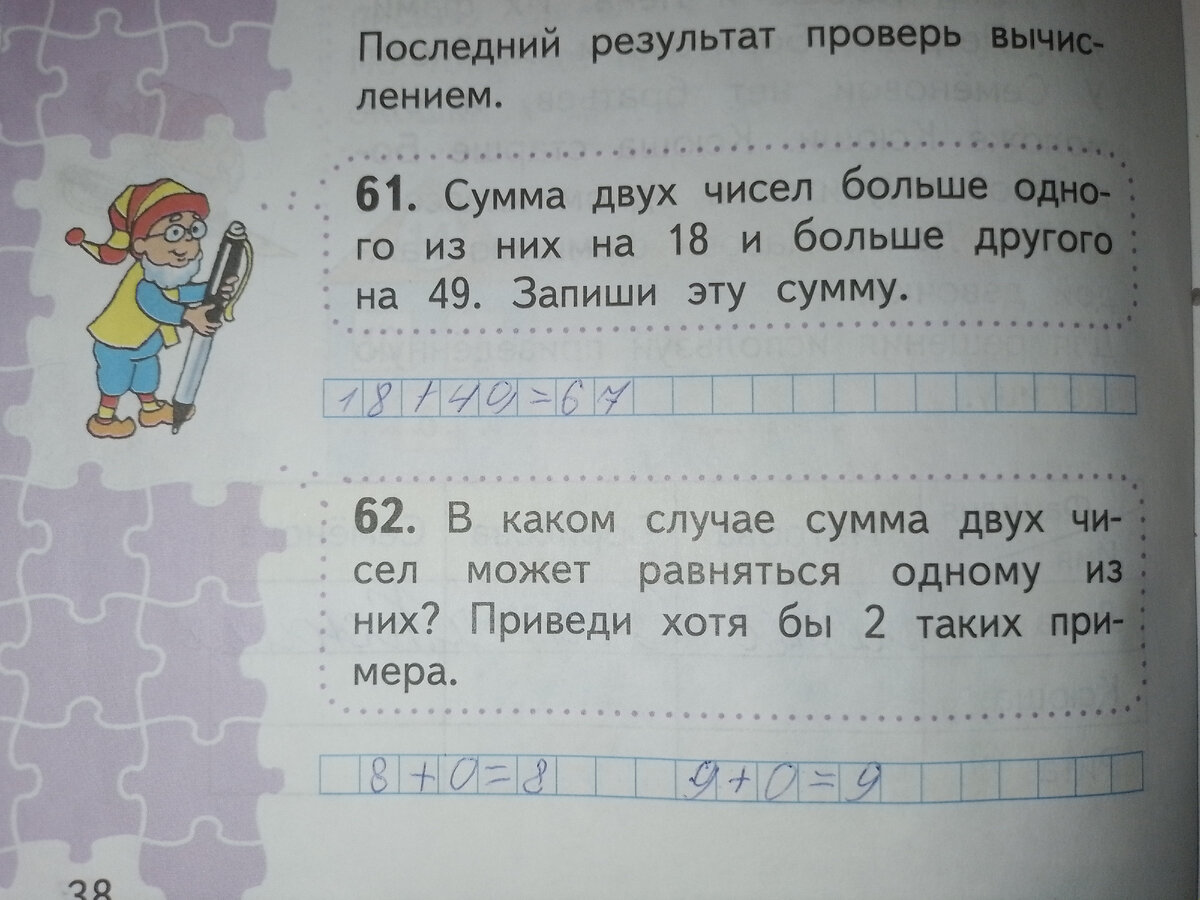 Последний результат проверь вычис-
лением.
61. Сумма двух чисел больше одно-
го из них на 18 и больше другого
на 49. Запиши эту сумму.
18+49=67
62. В каком случае сумма двух чи-
сел может равняться одному из
них? Приведи хотя бы 2 таких при-
мера.
8+0=8 9+0=9
38